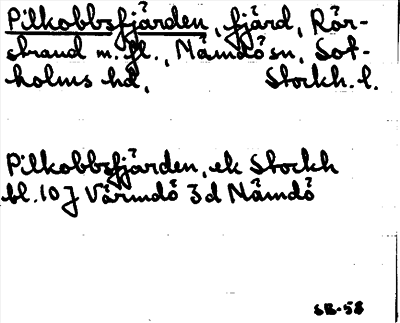 Pilkobbsfjärden, fjärd, Rör-
strand m. fl., Nämdö sn, Sot-
holms hd, Stockh. l.
Pilkobbsfjärden, ek Stockh
bl. 10 J Värmdö 3 d Nämdö
SB-58